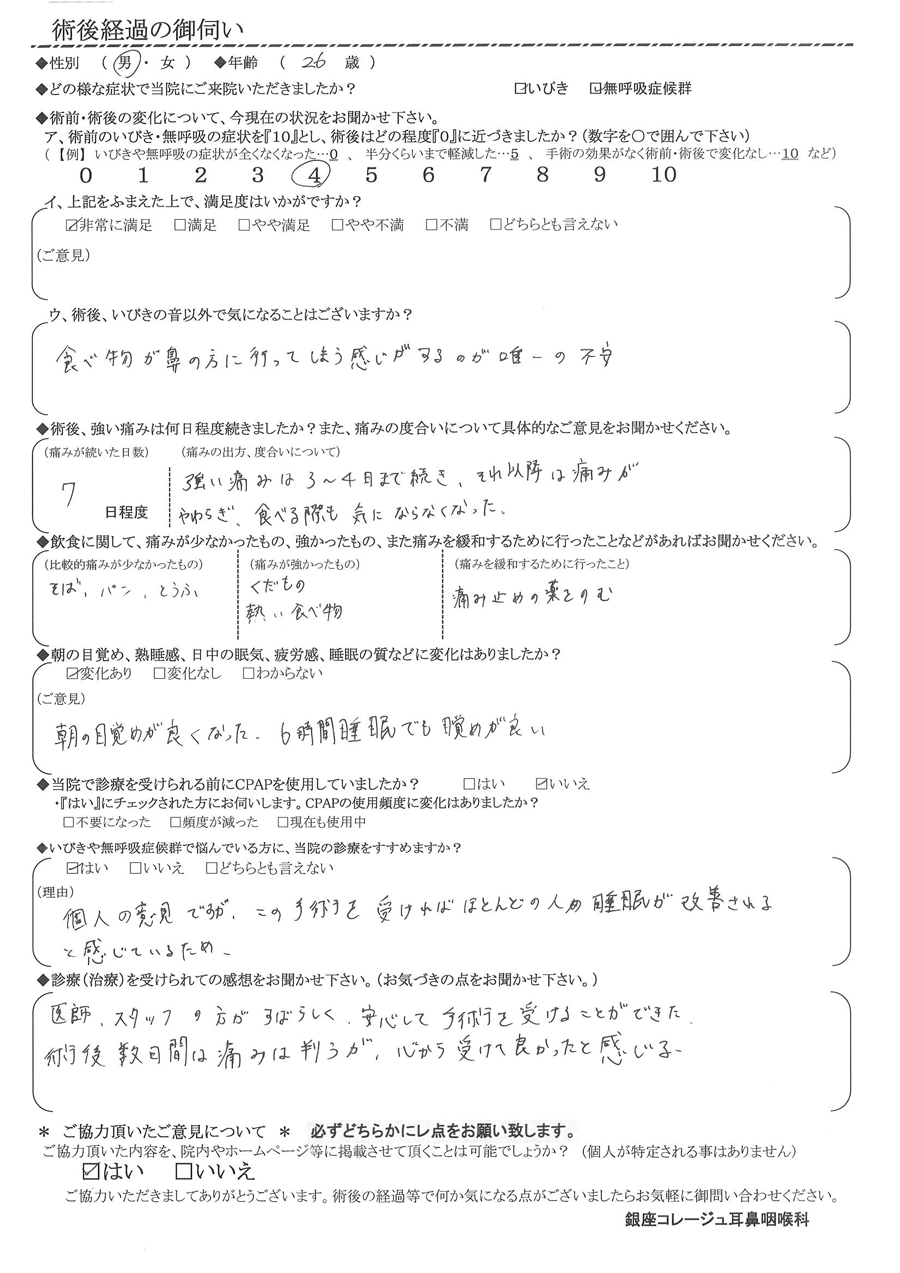 術後経過の御伺い
◆性別 ( 男 ・ 女 ) ◆年齢 ( 26 歳 )
◆どの様な症状で当院にご来院いただきましたか? ☑いびき ☑無呼吸症候群
◆術前・術後の変化について、今現在の状況をお聞かせ下さい。
ア、術前のいびき・無呼吸の症状を『10』とし、術後はどの程度『0』に近づきましたか?(数字を〇で囲んで下さい)
(【例】 いびきや無呼吸の症状が全くなくなった…0 、 半分くらいまで軽減した…5 、 手術の効果がなく術前・術後で変化なし…10 など)
0 1 2 3 4 5 6 7 8 9 10
イ、上記をふまえた上で、満足度はいかがですか?
☑非常に満足 □満足 □やや満足 □やや不満 □不満 □どちらとも言えない
(ご意見)
ウ、術後、いびきの音以外で気になることはございますか?
食べ物が鼻の方に行ってしまう感じがするのが唯一の不安
◆術後、強い痛みは何日程度続きましたか?また、痛みの度合いについて具体的なご意見をお聞かせください。
(痛みが続いた日数) (痛みの出方、度合いについて)
強い痛みは3〜4日まで続き、それ以降は痛みが
7 日程度 やわらぎ、食べる際も気にならなくなった.
◆飲食に関して、痛みが少なかったもの、強かったもの、また痛みを緩和するために行ったことなどがあればお聞かせください。
(比較的痛みが少なかったもの) (痛みが強かったもの) (痛みを緩和するために行ったこと)
そば、パン、とうふ くだもの 痛み止めの薬をのむ
熱い食べ物
◆朝の目覚め、熟睡感、日中の眠気、疲労感、睡眠の質などに変化はありましたか?
☑変化あり □変化なし □わからない
(ご意見)
朝の目覚めが良くなった. 6時間睡眠でも目覚めが良い
◆当院で診療を受けられる前にCPAPを使用していましたか? □はい ☑いいえ
・『はい』にチェックされた方にお伺いします。CPAPの使用頻度に変化はありましたか?
□不要になった □頻度が減った □現在も使用中
◆いびきや無呼吸症候群で悩んでいる方に、当院の診療をすすめますか?
☑はい □いいえ □どちらとも言えない
(理由)
個人の意見ですが、この手術を受ければほとんどの人の睡眠が改善される
と感じているため.
◆診療(治療)を受けられての感想をお聞かせ下さい。(お気づきの点をお聞かせ下さい。)
医師、スタッフの方がすばらしく、安心して手術を受けることができた.
術後数日間は痛みは伴うが、心から受けて良かったと感じる.
* ご協力頂いたご意見について * 必ずどちらかにレ点をお願い致します。
ご協力頂いた内容を、院内やホームページ等に掲載させて頂くことは可能でしょうか? (個人が特定される事はありません)
☑はい □いいえ
ご協力いただきましてありがとうございます。術後の経過等で何か気になる点がございましたらお気軽に御問い合わせください。
銀座コレージュ耳鼻咽喉科